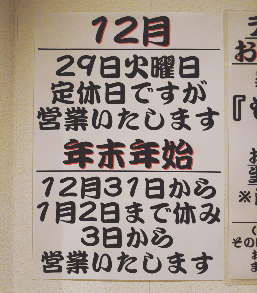 12月
29日火曜日
定休日ですが
営業いたします
年末年始
12月31日から
1月2日まで休み
3日から
営業いたします